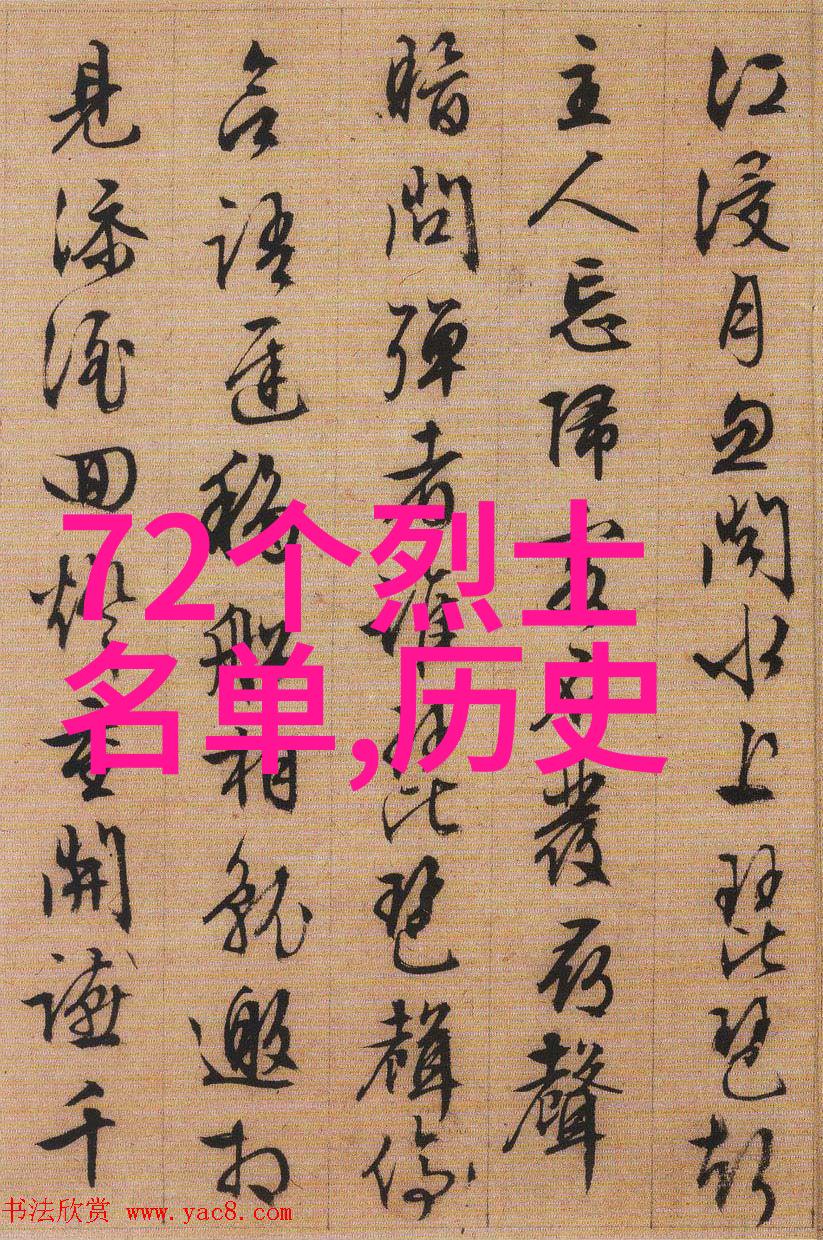 江浸月忽聞水上琵琶聲
主人忘歸客不發尋聲
暗問彈者誰琵琶聲停
欲語遲移船相就邀相
見添酒回燈重開讌千
72个烈士
名单,历史
书法欣赏 www.yac8.com